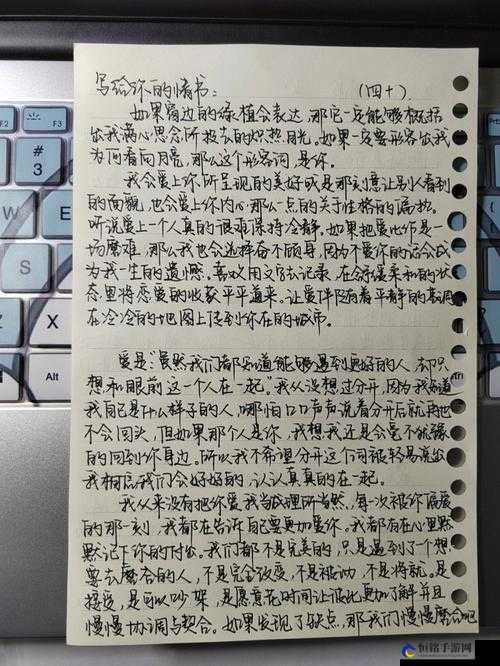 写给你的情书： （四十）
如果窗边的绿植会表达，那它一定能够概括
出我满心思念所投去的炽热目光。如果一定要形容出我
为何看向月亮，那么这个形容词，是你。
我会爱上你所呈现的美好或是那刻意让别人看到
的面貌，也会爱上你内心那么一点的关于性格的偏执。
听说爱上一个人真的很难保持冷静，如果把爱比作是一
场磨难，那么我也会选择奋不顾身，因为不爱你的话会成
为我一生的遗憾。喜欢用文字去记录，在舒缓柔和的状
态里将恋爱的收获平平道来。让爱伴随着平静的基调
在冷冷的地图上传到你在的城市。
爱是“虽然我们都知道能够遇到更好的人，却只
想和眼前这一个人在一起。”我从没想过分开，因为我知道
我自己是什么样子的人，哪怕口口声声说着分开后就再也
不会回头，但如果那个人是你，我想我还是会毫不犹豫
的回到你身边。所以我不希望分开这个词被轻易说出
我相信我们会好好的，认认真真的在一起。
我从来没有把你爱我当成理所当然，每一次被你偏爱
的那一刻，我都在告诉自己要更加爱你。我都有在心里默
默记下你的付出。我们都不是完美的，只是遇到了个想
要去磨合的人，不是完全改变，不是被动，不是将就。是
接受，是可以吵架，是愿意花时间让彼此更加了解并且
慢慢协调与契合。如果发现了缺点，那我们慢慢磨合吧
恒铭手游网